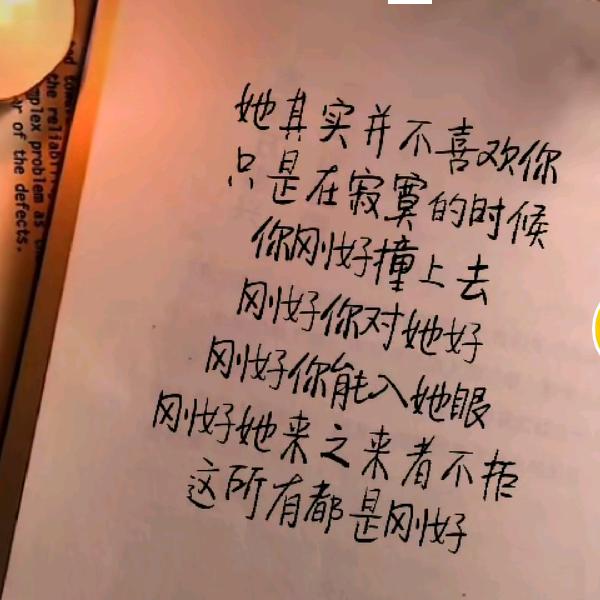 她其实并不喜欢你
只是在寂寞的时候
你刚好撞上去
刚好你对她好
刚好你能入她眼
刚好她来之来者不拒
这所有都是刚好
the reliability
mplex problem as
of the defects.